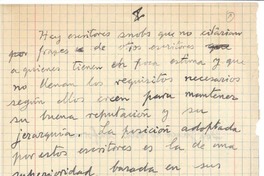 Hay escritores snobs que no citarían
por frases de otros escritores
a quienes tienen en poca estima y que
no llenan los requisitos necesarios
según ellos creen para mantener
su buena reputación y su
jerarquía. La posición adoptada
por estos escritores es la de una
superioridad basada en sus